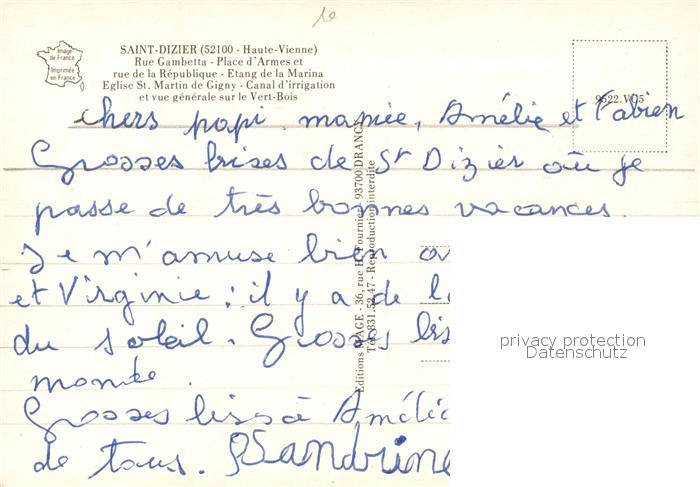 10
Image de France
Imprimée en France
SAINT-DIZIER (52100 - Haute-Vienne)
Rue Gambetta - Place d'Armes et
rue de la République - Etang de la Marina
Eglise St. Martin de Gigny - Canal d'irrigation
et vue générale sur le Vert-Bois
9522.VO5
chers papi. mamie, Amélie et Fabien
Grosses bises de St Dizier où je
passe de très bonnes vacances.
Je m'amuse bien
et Virginie : il y a de
du soleil. Grosses
Grosses Amélie
de tous. Sandrine
Editions IMAGE - 36, rue H. Fournier, 93700 DRANCY
Tél. 831.52.47 - Reproduction interdite
privacy protection
Datenschutz